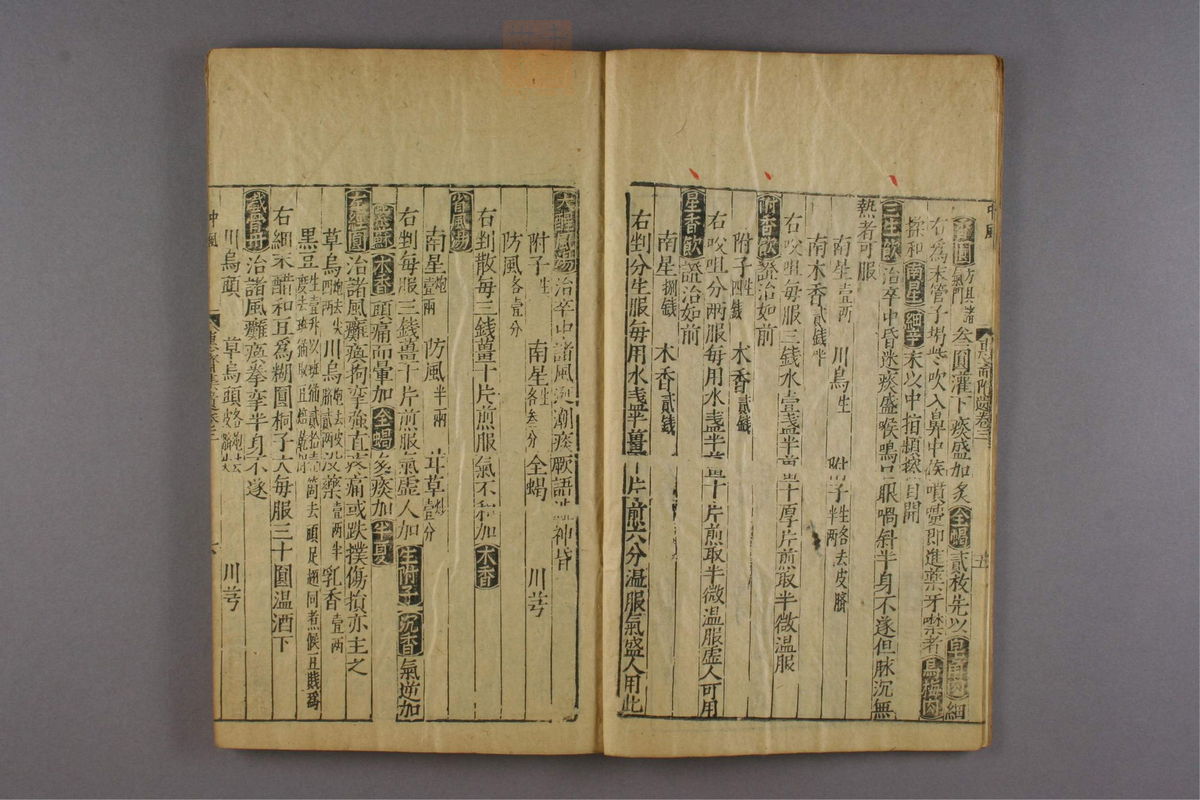 中風
叁圓灌下痰盛加炙全蝎貳枚先以皂角肉細
右爲末管子揭些吹入鼻中候噴嚏即進藥牙噤者烏梅肉
搽和南星細辛末以中指頻擦自開
三生飲治卒中昏迷痰盛喉鳴口眼喎斜半身不遂但脉沉無
熱者可服
南星壹兩 川烏生 附子生各去皮臍半兩
南木香貳錢半
右㕮咀每服三錢水壹盞半薑十厚片煎取半微溫服
附香飲證治如前
附子生四錢 木香貳錢
右㕮咀分兩服每用水盞半薑十片煎取半微溫服虛人可用
星香飲證治如前
南星捌錢 木香貳錢
右剉分生服每用水盞半薑十片煎六分溫服氣盛人用此
大醒風湯治卒中諸風涎潮痰厥語澁神昏
附子生 南星生各叁分 川芎
防風各壹分 全蝎
右剉散每三錢薑十片煎服氣不和加木香
省風湯
南星炮壹兩 防風半兩 甘草壹分
右剉每服三錢薑十片煎服氣虛人加生附子沉香氣逆加
紫蘇木香頭痛而暈加全蝎多痰加半夏
左經圓治諸風癱瘓拘攣強直疼痛或跌撲傷損亦主之
草烏炮去尖四兩 川烏炮去皮臍貳兩 沒藥壹兩半 乳香壹兩
黑豆生壹升以斑猫貳拾壹箇去頭足翅同煮候豆賤爲度去斑猫取豆焙乾
右細末醋和豆爲糊圓桐子大每服三十圓溫酒下
治諸風癱瘓拳攣半身不遂
川烏頭 草烏頭各炮去皮臍尖 川芎
中風